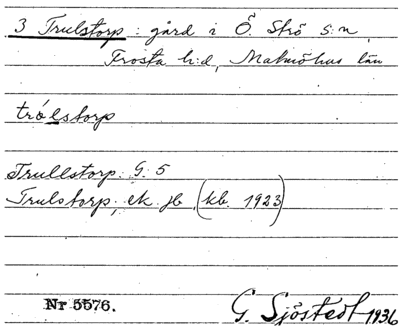 3 Trulstorp : gård i Ö. Strö s:n,
Frosta h:d, Malmöhus län
trólstorp
Trullstorp. G. 5
Trulstorp, ek. jb. (kb. 1923)
Nr 5576.
G. Sjöstedt 1936